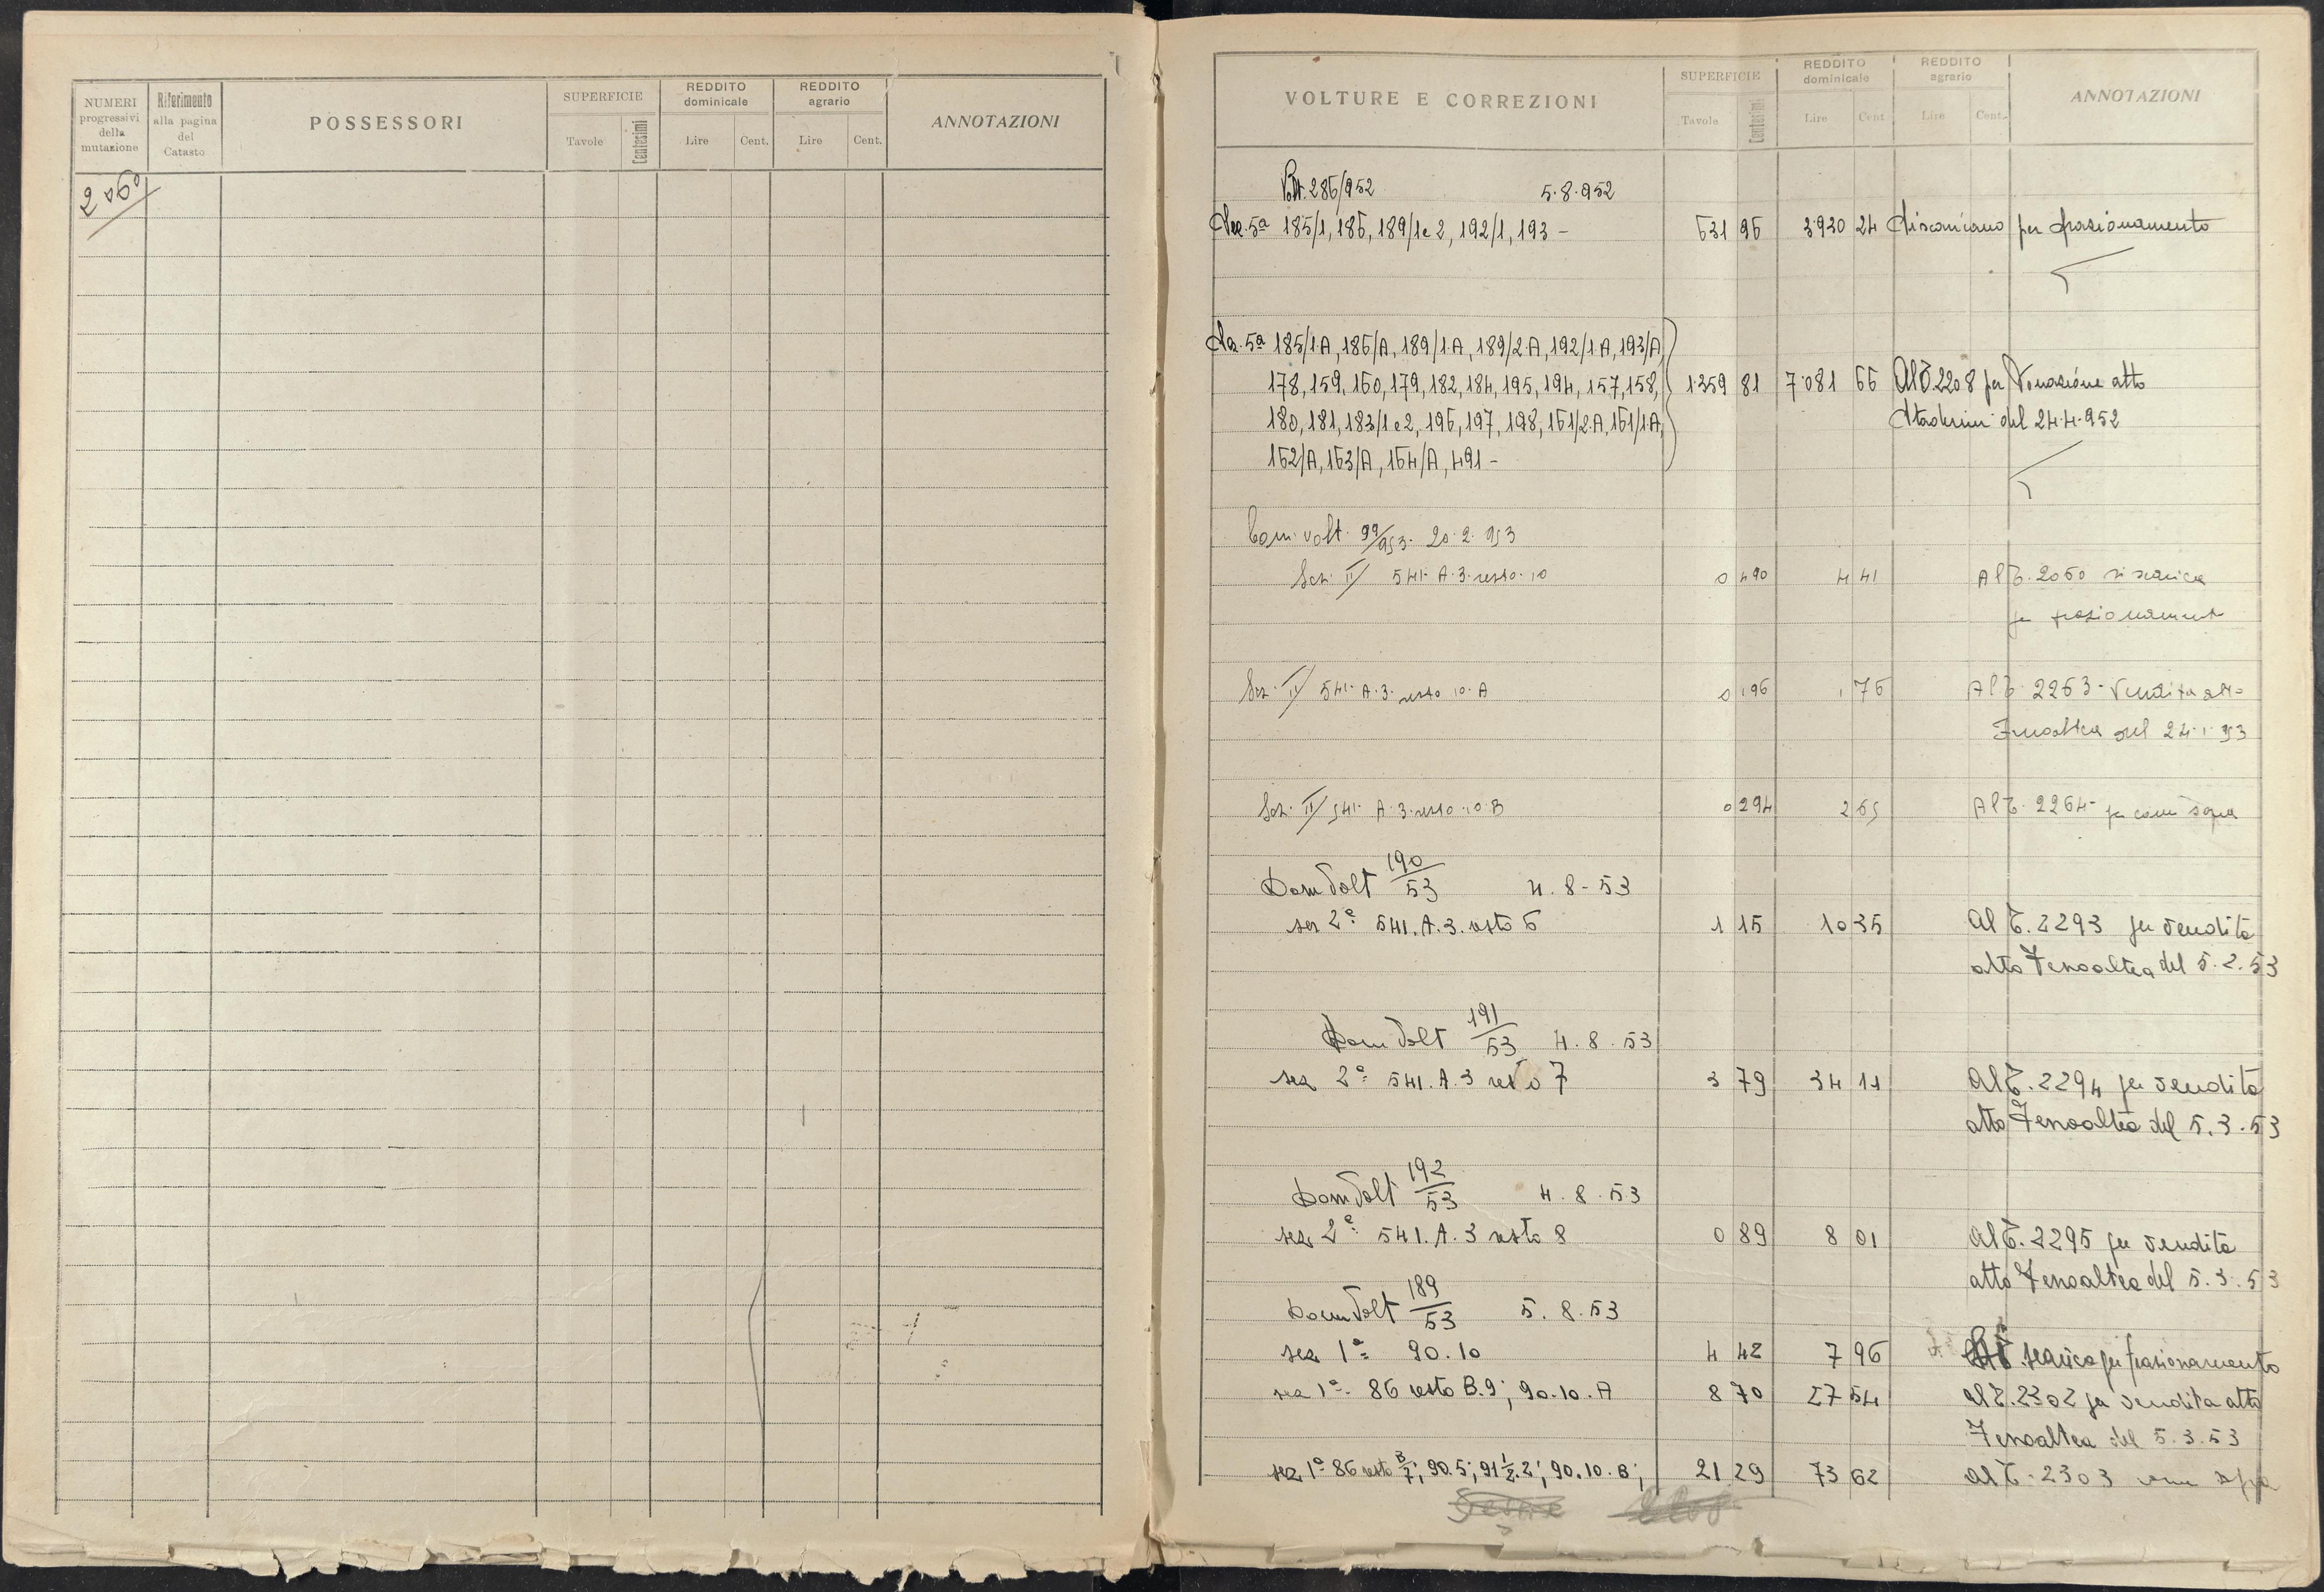 NUMERI progressivi della mutazione
Riferimento alla pagina del Catasto
POSSESSORI
SUPERFICIE
Tavole Centesimi
REDDITO dominicale
Lire Cent.
REDDITO agrario
Lire Cent.
ANNOTAZIONI
2060
VOLTURE E CORREZIONI
SUPERFICIE
Tavole Centesimi
REDDITO dominicale
Lire Cent
REDDITO agrario
Lire Cent.
ANNOTAZIONI
Volt. 286/952 5.8.952
Sez. 5ª 185/1, 186, 189/1 e 2, 192/1, 193 - 631 96 3930 24 si scaricano per frazionamento
Sez. 5ª 185/1.A, 186/A, 189/1.A, 189/2.A, 192/1.A, 193/A,
178, 159, 160, 179, 182, 184, 195, 194, 157, 158, 1359 81 7081 66 Al T. 2208 per Donazione atto
180, 181, 183/1 e 2, 196, 197, 198, 161/2.A, 161/1.A, Staderini del 24.4.952
162/A, 163/A, 164/A, 491 -
Dom. volt. 99/953. 20.2.953
Sez. II/ 541. A.3. resto.10 0 490 4 41 Al T. 2060 si scarica
per frazionamento
Sez. II/ 541. A.3. resto 10.A 0 196 1 76 Al T. 2263. Vendita atto
Fenoaltea del 24.1.953
Sez. II/ 541. A.3. resto.10.B 0 294 2 65 Al T. 2264. per come sopra
Dom Volt 190/53 4.8-53
sez 2ª 541.A.3. resto 6 1 15 10 35 Al T. 2293 per vendita
atto Fenoaltea del 5.2.53
Dom Volt 191/53 4.8.53
sez 2ª 541.A.3 resto 7 3 79 34 11 Al T. 2294 per vendita
atto Fenoaltea del 5.3.53
Dom Volt 192/53 4.8.53
sez 2ª 541.A.3 resto 8 0 89 8 01 Al T. 2295 per vendita
atto Fenoaltea del 5.3.53
Dom Volt 189/53 5.8.53
sez 1ª 90.10 4 42 7 96 scarica per frazionamento
sez 1ª 86 resto B.9; 90.10.A 8 70 27 54 al T. 2302 per vendita atto
Fenoaltea del 5.3.53
sez 1ª 86 resto B/7; 90.5; 91 1/2.2; 90.10.B; 21 29 73 62 al T. 2303 come sopra